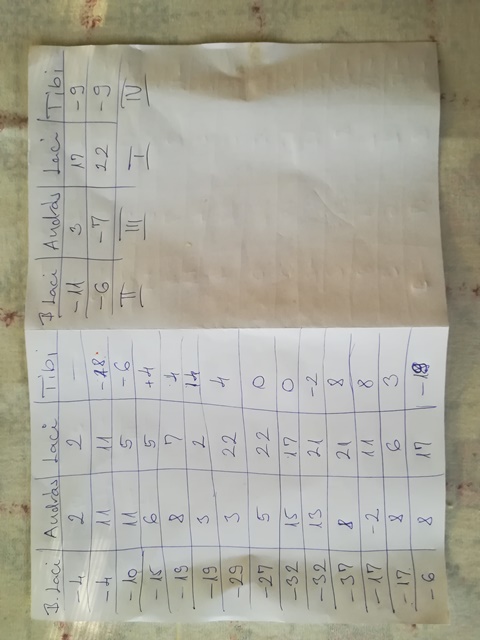 B. Laci András Laci Tibi
-4 2 2 —
-4 11 11 -18
-10 11 5 -6
-15 6 5 +4
-19 8 7 4
-19 3 2 14
-29 3 22 4
-27 5 22 0
-32 15 17 0
-32 13 21 -2
-37 8 21 8
-17 -2 11 8
-17 8 6 3
-6 8 17 -19
B Laci András Laci Tibi
-11 3 17 -9
-6 -7 22 -9
II III I IV